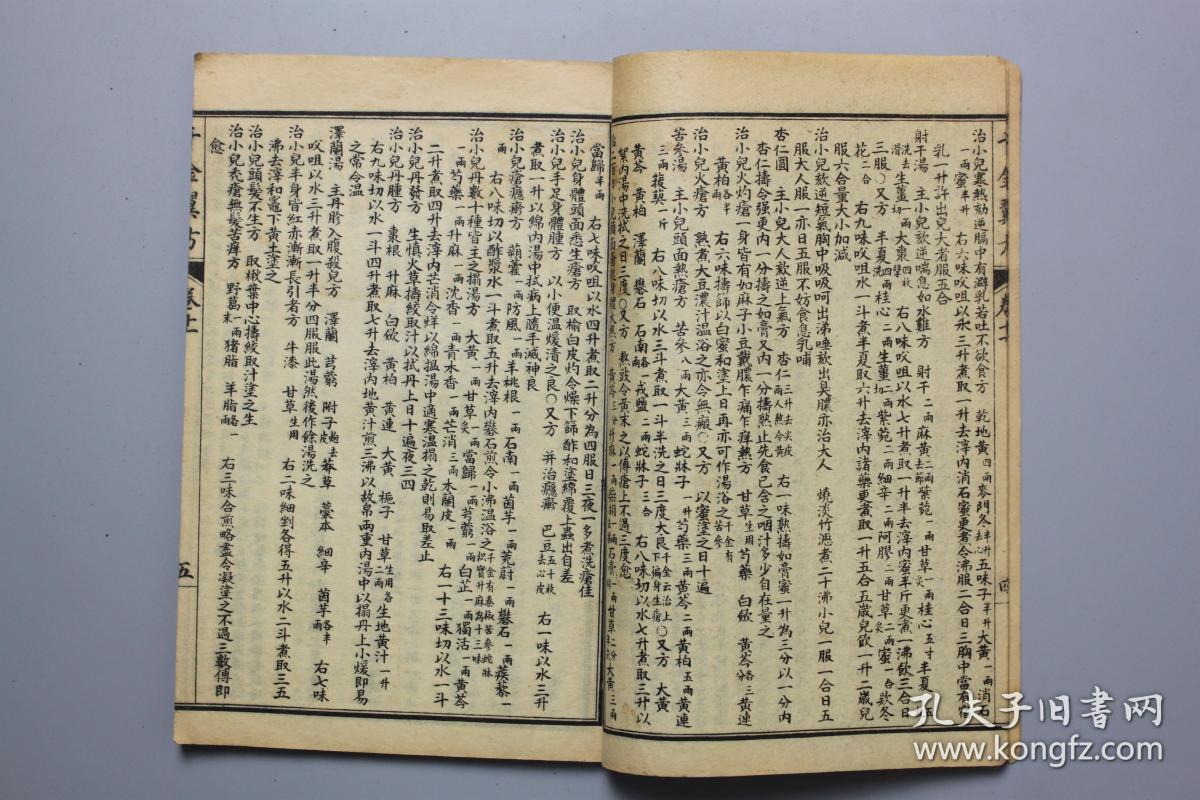 治小兒寒熱劾逆膈中有澼乳若吐不欲食方 乾地黃四兩 麥門冬半升去心 五味子半升 大黃一兩 消石
一兩 蜜半升 右六味㕮咀以水三升煮取一升去滓內消石蜜更煮令沸服二合日三胸中當有宿
乳一升許出兒大者服五合
射干湯 主小兒欬逆喘息如水雞方 射干二兩 麻黃二兩去節 紫菀一兩 甘草一兩炙 桂心五寸 半夏五
枚洗去滑 生薑一兩切 大棗四枚擘 右八味㕮咀以水七升煮取一升半去滓內蜜半斤更煮一沸飲三合日
三服○又方 半夏四兩洗 桂心二兩 生薑二兩切 紫菀二兩 細辛二兩 阿膠二兩 甘草二兩炙 蜜一合 欵冬
花二合 右九味㕮咀水一斗煮半夏取六升去滓內諸藥更煮取一升五合五歲兒飲一升二歲兒
服六合量大小加減
治小兒欬逆短氣胸中吸吸呵出涕唾欬出臭膿亦治大人 燒淡竹瀝煮二十沸小兒一服一合日五
服大人服一升亦日五服不妨食息乳哺
杏仁圓 主小兒大人欬逆上氣方 杏仁三升去尖皮兩人熬令黃 右一味熟擣如膏蜜一升為三分以一分內
杏仁擣令强更內一分擣之如膏又內一分擣熟止先食已含之咽汁多少自在量之
治小兒火灼瘡一身皆有如麻子小豆戴膿乍痛乍痒熱方 甘草生用 芍藥 白斂 黃芩各三分 黃連
黃柏各半兩 右六味擣篩以白蜜和塗上日再亦可作湯浴之千金有苦參
治小兒火瘡方 熟煮大豆濃汁温浴之亦令無瘢○又方 以蜜塗之日十遍
苦參湯 主小兒頭面熱瘡方 苦參八兩 大黃三兩 蛇牀子一升 芍藥三兩 黃芩二兩 黃柏五兩 黃連
三兩 菝葜一斤 右八味切以水三斗煮取一斗半洗之日三度大良千金云治上下徧身生瘡○又方 大黃
黃芩 黃柏 澤蘭 礬石 石南各一兩 戎鹽二兩 蛇牀子三合 右八味切以水七升煮取三升以
絮內湯中洗拭之日三度○又方 熬豉令黃末之以傅瘡上不過三度愈
當歸半兩 右七味㕮咀以水四升煮取二升分為四服日三夜一多煮洗瘡佳
治小兒身體頭面悉生瘡方 取榆白皮灼令燥下篩酢和塗綿覆上蟲出自差
治小兒手足身體腫方 以小便温暖漬之良○又方 并治癮瘮 巴豆五十枚去心皮 右一味以水三升
煮取一升以綿內湯中拭病上隨手滅神良
治小兒瘡癮瘮方 蒴藋一兩 防風一兩 羊桃根一兩 石南一兩 茵芋一兩 茺蔚一兩 礬石一兩 蒺藜一
兩 右八味切以酢漿水一斗煮取五升去滓內礬石煎令小沸温浴之千金有秦椒苦參蛇牀枳實升麻為十三味
治小兒丹數十種皆主之搨湯方 大黃一兩 甘草一兩炙 當歸一兩 芎藭一兩 白芷一兩 獨活一兩 黃芩
一兩 芍藥一兩 升麻一兩 沈香一兩 青木香一兩 芒消三兩 木蘭皮一兩 右一十三味切以水一斗
二升煮取四升去滓內芒消令烊以綿搵湯中適寒温搨之乾則易取差止
治小兒丹發方 生慎火草擣絞取汁以拭丹上日十遍夜三四
治小兒丹腫方 棗根 升麻 白斂 黃柏 黃連 梔子 甘草各二兩生用 生地黃汁一升
右九味切以水一斗四升煮取七升去滓內地黃汁煎三沸以故帛兩重內湯中以搨丹上小煖即易
之常令温
澤蘭湯 主丹胗入腹殺兒方 澤蘭 芎藭 附子炮去皮 莽草 藁本 細辛 茵芋各半兩 右七味
㕮咀以水三升煮取一升半分四服服此湯然後作餘湯洗之
治小兒半身皆紅赤漸漸長引者方 牛漆 甘草生用 右二味細剉各得五升以水二斗煮取三五
沸去滓和竈下黃土塗之
治小兒頭髮不生方 取楸葉中心擣絞取汁塗之生
治小兒禿瘡無髮苦痒方 野葛一兩末 豬脂 羊脂各一兩 右三味合煎略盡令凝塗之不過三數傅即
愈
千金翼方 卷十一
四
千金翼方 卷十一
五
孔夫子旧书网
www.kongfz.com